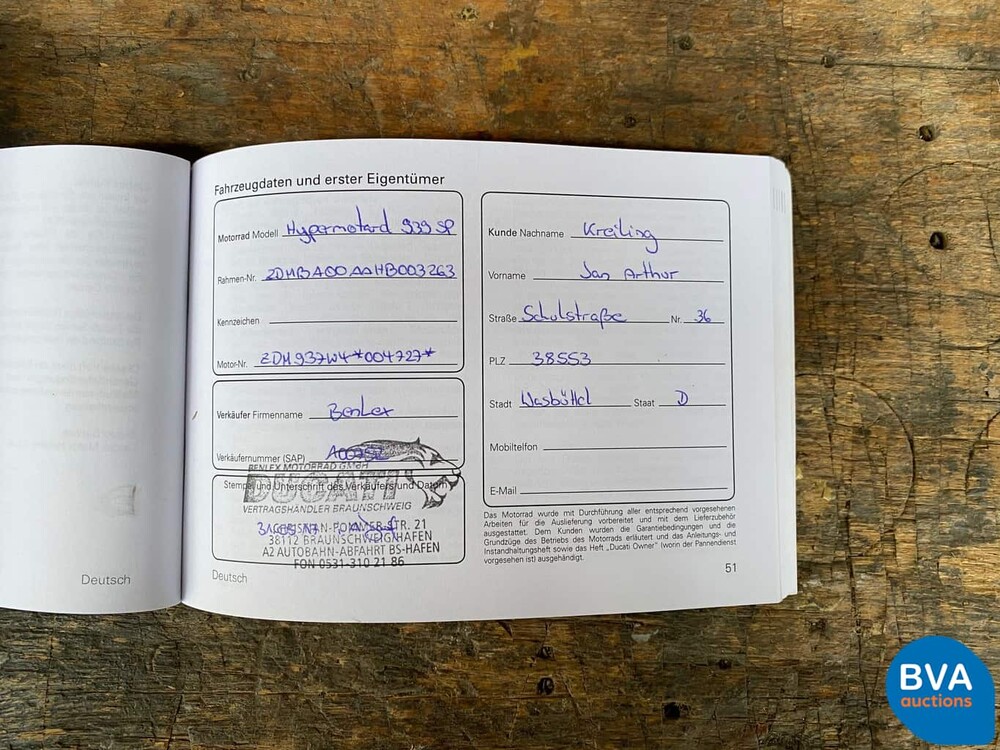 Fahrzeugdaten und erster Eigentümer
Motorrad Modell Hypermotard 939 SP
Rahmen-Nr. ZDMBA00AAHB003263
Kennzeichen
Motor-Nr. ZDM937W4*004727*
Verkäufer Firmenname Benlex
Verkäufernummer (SAP)
BENLEX MOTORRAD GmbH
Stempel und Unterschrift des Verkäufers und Datum
DUCATI
VERTRAGSHÄNDLER BRAUNSCHWEIG
STR. 21
38112 BRAUNSCHWEIG-HAFEN
A2 AUTOBAHN-ABFAHRT BS-HAFEN
FON 0531-310 21 86
Kunde Nachname Kreiling
Vorname Jan Arthur
Straße Schulstraße Nr. 36
PLZ 38553
Stadt Wasbüttel Staat D
Mobiltelfon
E-Mail
Das Motorrad wurde mit Durchführung aller entsprechend vorgesehenen
Arbeiten für die Auslieferung vorbereitet und mit dem Lieferzubehör
ausgestattet. Dem Kunden wurden die Garantiebedingungen und die
Grundzüge des Betriebs des Motorrads erläutert und das Anleitungs- und
Instandhaltungsheft sowie das Heft „Ducati Owner" (worin der Pannendienst
vorgesehen ist) ausgehändigt.
Deutsch
Deutsch
51
BVA
auctions